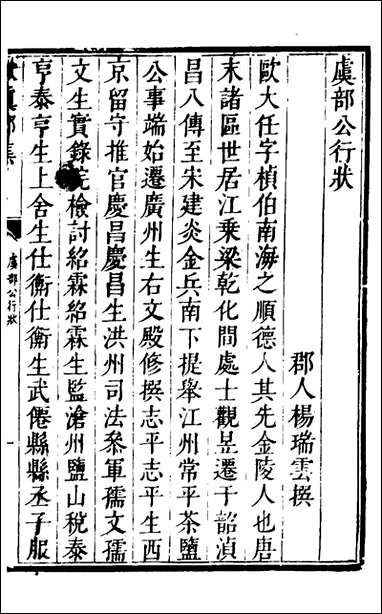 虞部公行狀
郡人楊瑞雲撰
歐大任字楨伯南海之順德人其先金陵人也唐
末諸區世居江乗梁乾化間處士觀昱遷于韶湞
昌八傳至宋建炎金兵南下提舉江州常平茶鹽
公事端始遷廣州生右文殿修撰志平志平生西
京留守推官慶昌慶昌生洪州司法叅軍孺文孺
文生實錄院檢討紹霖紹霖生監滄州鹽山稅泰
亨泰亨生上舍生仕衡仕衡生武僊縣縣丞子服
虞部公行狀
一